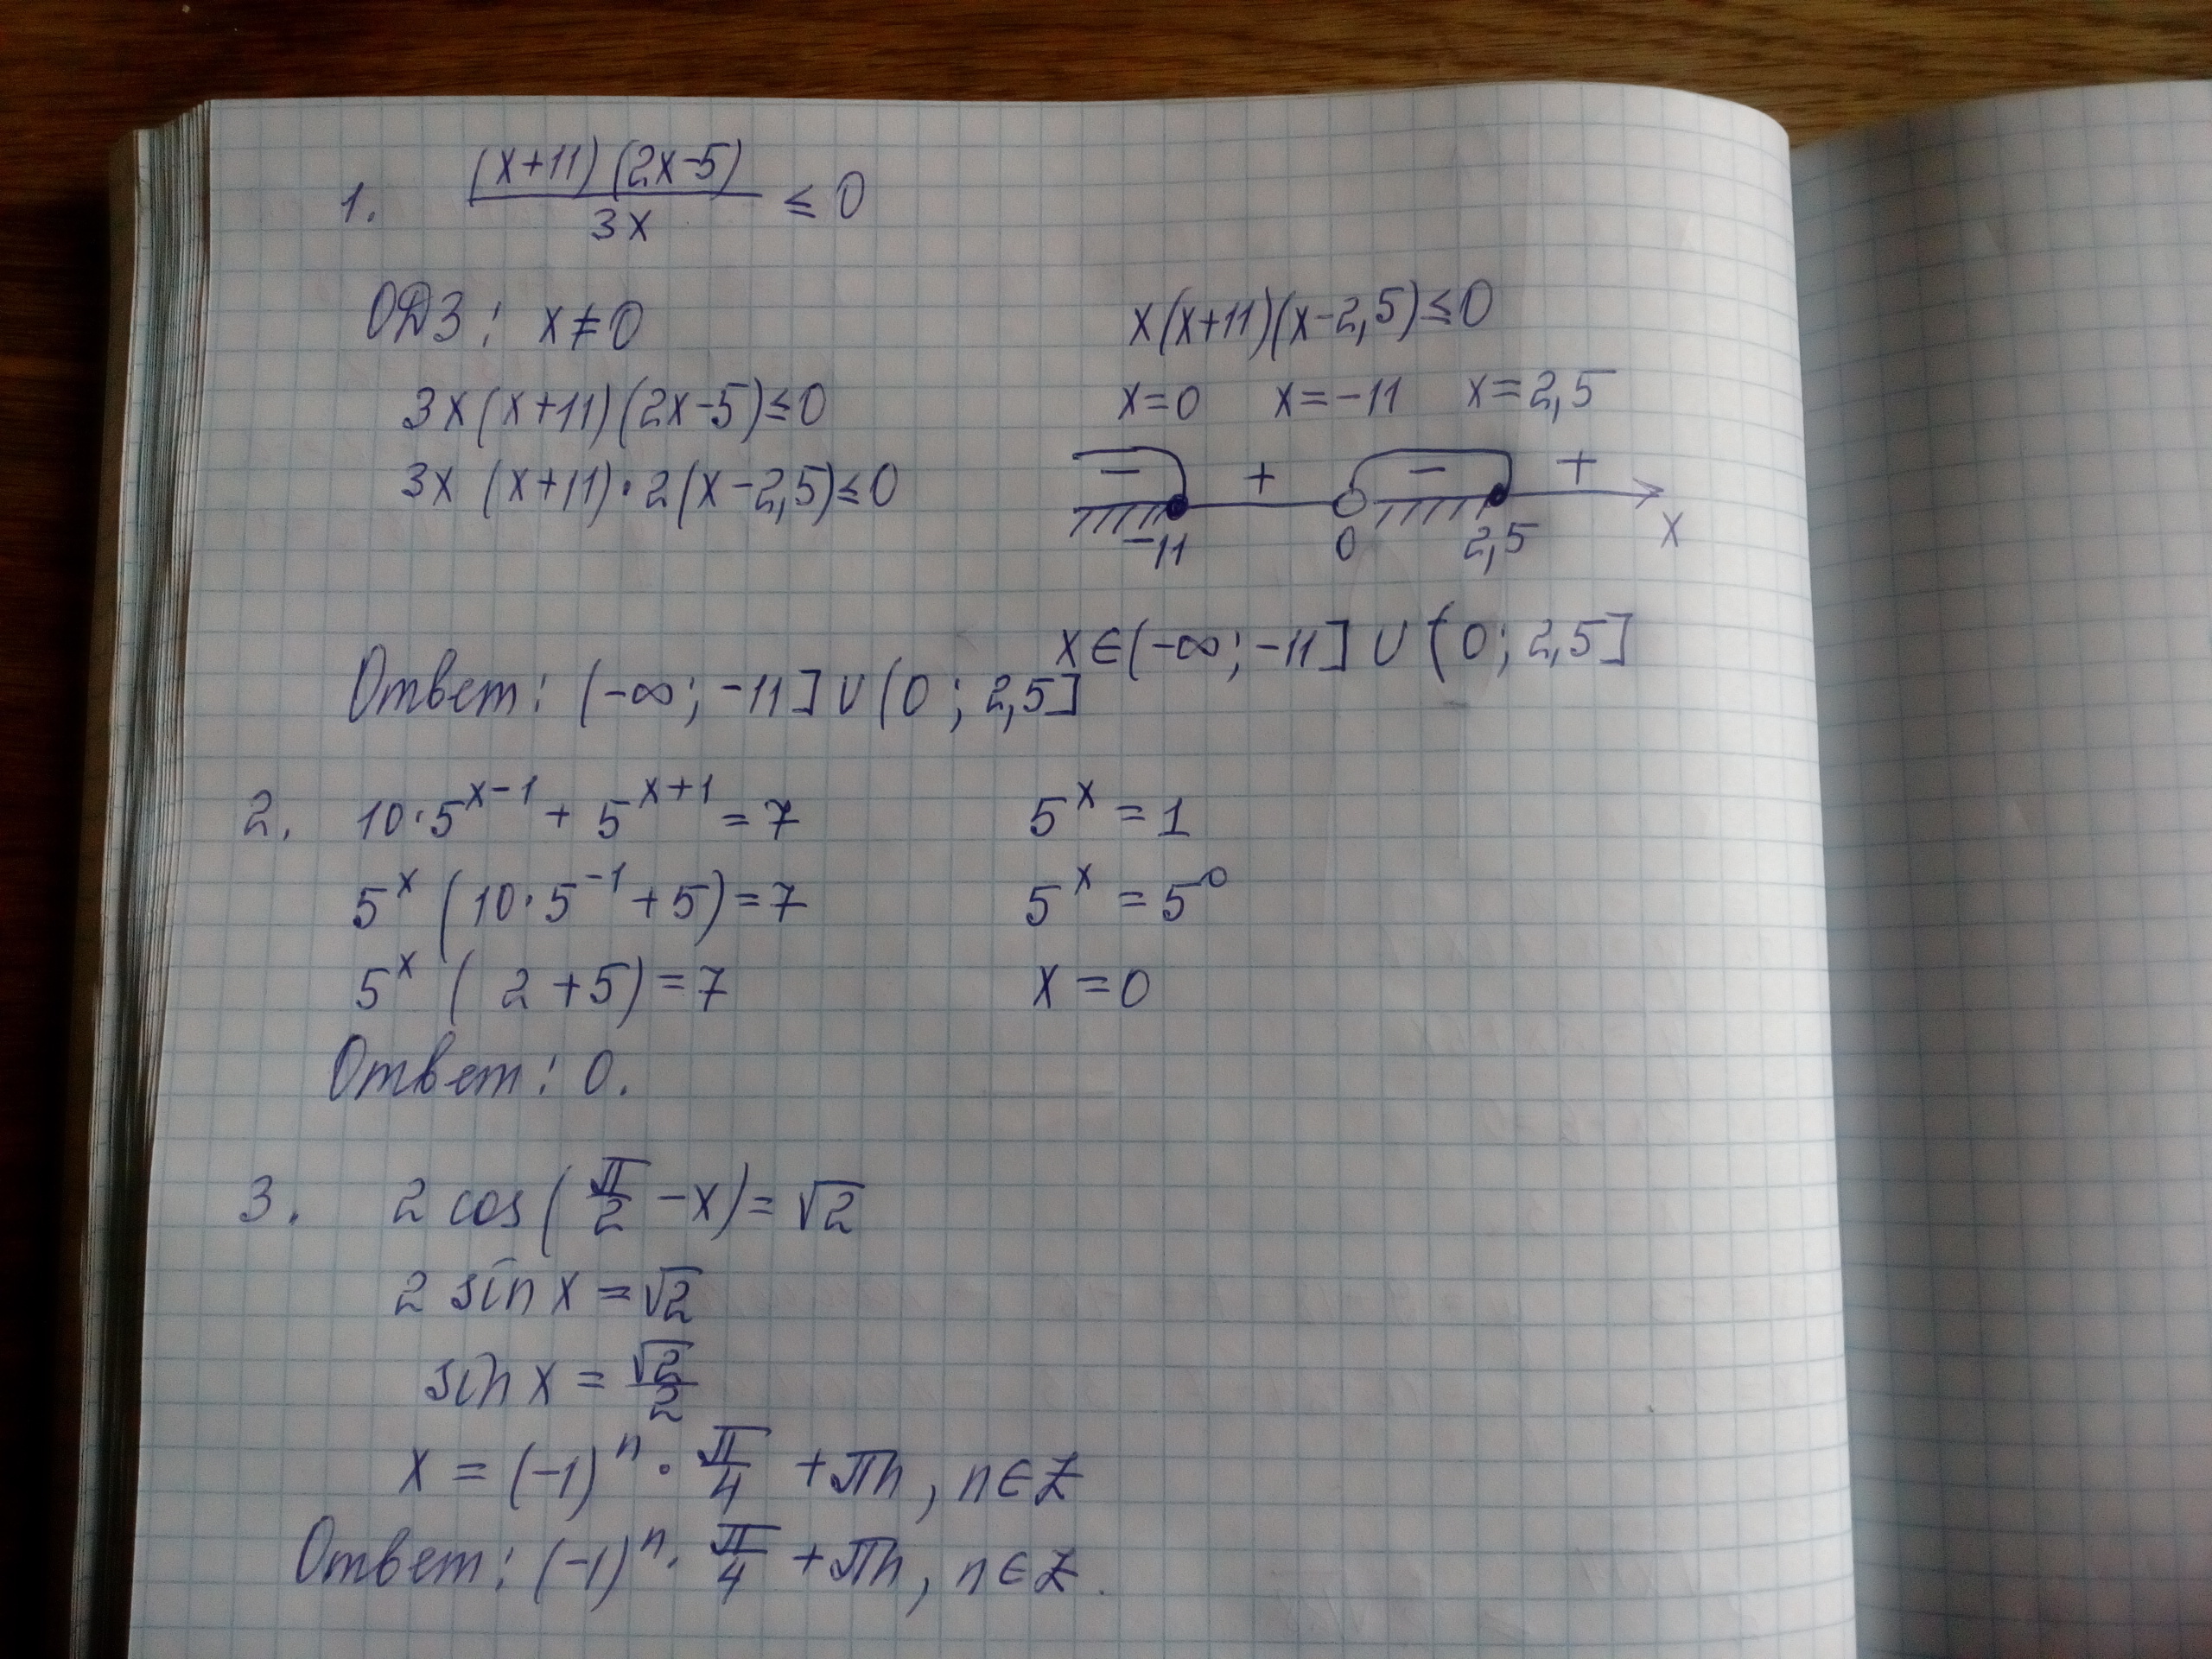 1. (x+11)(2x-5)/3x ≤ 0
ОДЗ: x≠0
3x(x+11)(2x-5)≤0
3x (x+11)·2(x-2,5)≤0
x(x+11)(x-2,5)≤0
x=0 x=-11 x=2,5
- + - +
-11 0 2,5 x
x∈(-∞; -11] ∪ (0; 2,5]
Ответ: (-∞; -11] ∪ (0; 2,5]
2. 10·5^(x-1) + 5^(x+1) = 7
5^x (10·5^(-1) + 5) = 7
5^x (2+5) = 7
5^x = 1
5^x = 5^0
x = 0
Ответ: 0.
3. 2 cos(π/2 - x) = √2
2 sin x = √2
sin x = √2/2
x = (-1)^n · π/4 + πn, n∈Z
Ответ: (-1)^n · π/4 + πn, n∈Z.